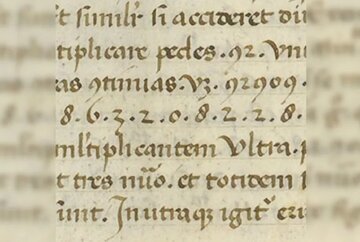 t simili si accideret diu
tiplicare pedes. 92. Vni
as 9tinuas. Vz. 92909.
8. 6. 3. 2. 0. 8. 2. 2. 8.
ml'tiplicantem Vltra. p
t tres nũo. et totidem
unt. In utraqȝ igit᷑ eri